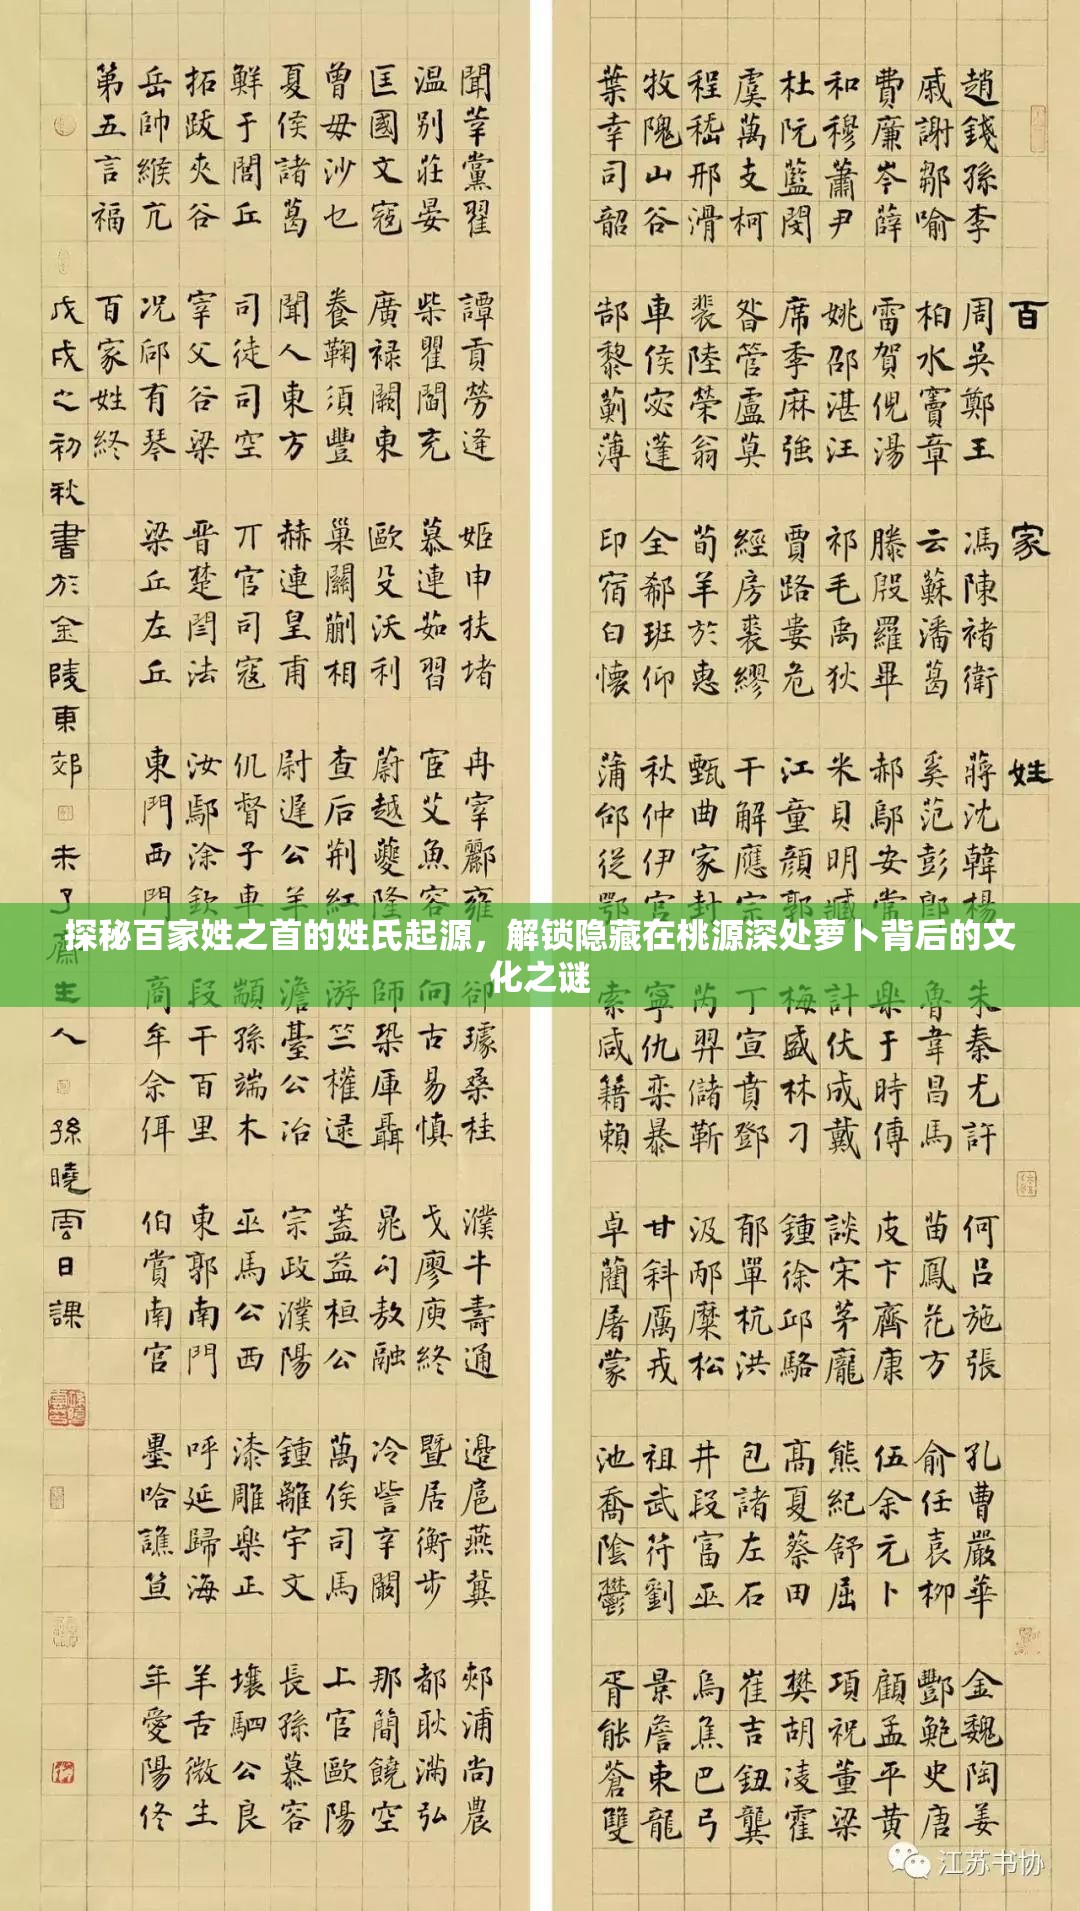 百家姓
趙錢孫李 周吳鄭王 馮陳褚衛 蔣沈韓楊 朱秦尤許 何呂施張 孔曹嚴華 金魏陶姜
戚謝鄒喻 柏水竇章 云蘇潘葛 奚范彭郎 魯韋昌馬 苗鳳花方 俞任袁柳 酆鮑史唐
費廉岑薛 雷賀倪湯 滕殷羅畢 郝鄔安常 樂于時傅 皮卞齊康 伍余元卜 顧孟平黃
和穆蕭尹 姚邵湛汪 祁毛禹狄 米貝明臧 計伏成戴 談宋茅龐 熊紀舒屈 項祝董梁
杜阮藍閔 席季麻強 賈路婁危 江童顏郭 梅盛林刁 鍾徐邱駱 高夏蔡田 樊胡凌霍
虞萬支柯 昝管盧莫 經房裘繆 干解應宗 丁宣賁鄧 郁單杭洪 包諸左石 崔吉鈕龔
程嵇邢滑 裴陸榮翁 荀羊於惠 甄曲家封 芮羿儲靳 汲邴糜松 井段富巫 烏焦巴弓
牧隗山谷 車侯宓蓬 全郗班仰 秋仲伊宮 寧仇欒暴 甘斜厲戎 祖武符劉 景詹束龍
葉幸司韶 郜黎薊薄 印宿白懷 蒲邰從鄂 索咸籍賴 卓藺屠蒙 池喬陰鬱 胥能蒼雙
聞莘黨翟 譚貢勞逄 姬申扶堵 冉宰酈雍 郤璩桑桂 濮牛壽通 邊扈燕冀 郟浦尚農
温別莊晏 柴瞿閻充 慕連茹習 宦艾魚容 向古易慎 戈廖庾終 暨居衡步 都耿滿弘
匡國文寇 廣禄闕東 歐殳沃利 蔚越夔隆 師鞏厙聶 晁勾敖融 冷訾辛闞 那簡饒空
曾毋沙乜 養鞠須豐 巢關蒯相 查后荆紅 游竺權逯 蓋益桓公 萬俟司馬 上官歐陽
夏侯諸葛 聞人東方 赫連皇甫 尉遲公羊 澹臺公冶 宗政濮陽 鍾離宇文 長孫慕容
鮮于閭丘 司徒司空 丌官司寇 仉督子車 顓孫端木 巫馬公西 漆雕樂正 壤駟公良
拓跋夾谷 宰父谷梁 晉楚閆法 汝鄢涂欽 段干百里 東郭南門 呼延歸海 羊舌微生
岳帥緱亢 況郈有琴 梁丘左丘 東門西門 商牟佘佴 伯賞南宮 墨哈譙笪 年愛陽佟
第五言福 百家姓終
戊戌之初秋書於金陵東郊 未了齋主人 孫曉雲日課
探秘百家姓之首的姓氏起源，解锁隐藏在桃源深处萝卜背后的文
化之谜
江苏书协